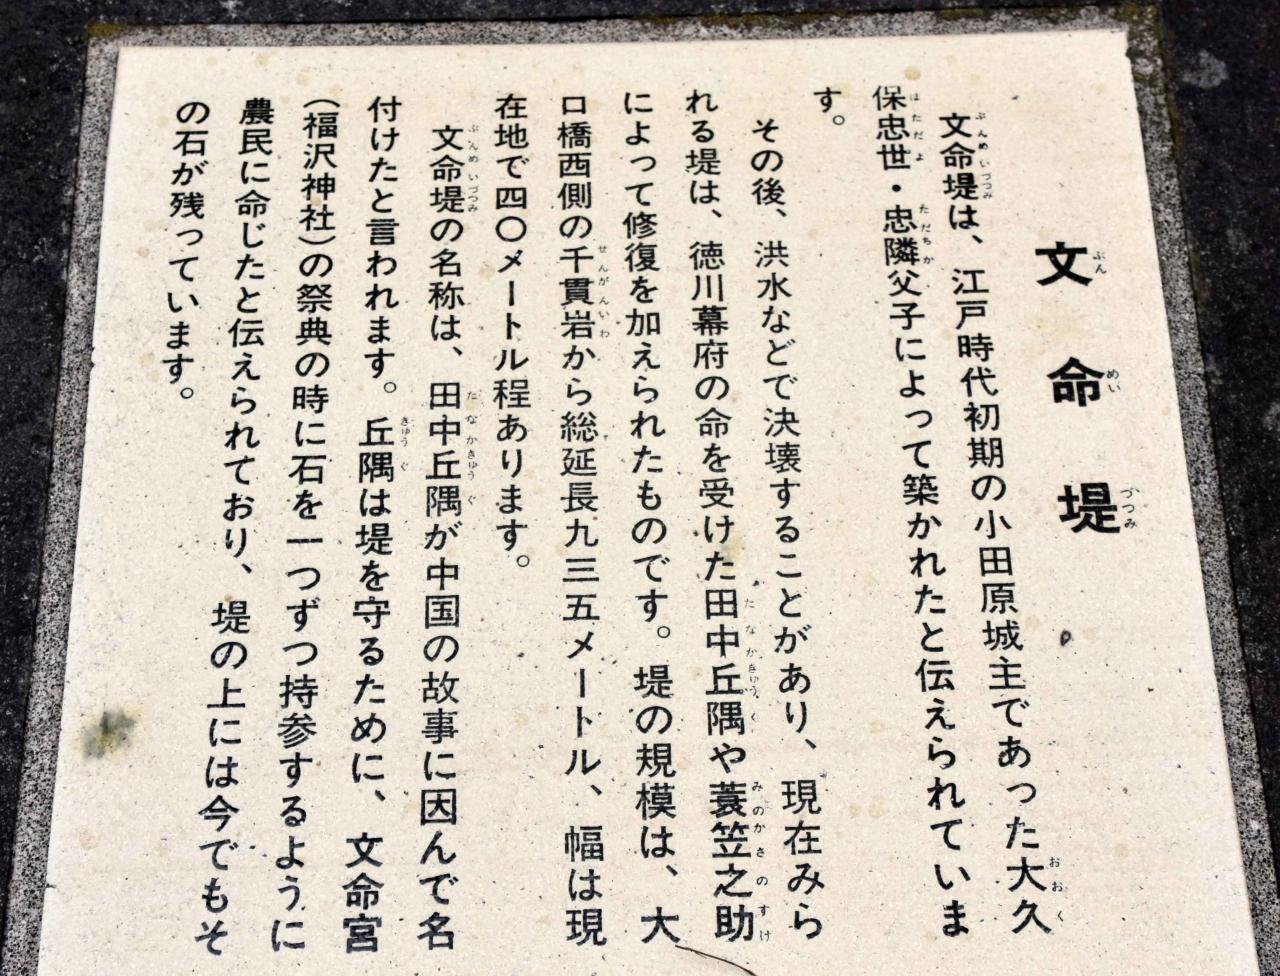 文命堤
文命堤は、江戸時代初期の小田原城主であった大久
保忠世・忠隣父子によって築かれたと伝えられていま
す。
その後、洪水などで決壊することがあり、現在みら
れる堤は、徳川幕府の命を受けた田中丘隅や蓑笠之助
によって修復を加えられたものです。堤の規模は、大
口橋西側の千貫岩から総延長九三五メートル、幅は現
在地で四〇メートル程あります。
文命堤の名称は、田中丘隅が中国の故事に因んで名
付けたと言われます。丘隅は堤を守るために、文命宮
(福沢神社)の祭典の時に石を一つずつ持参するように
農民に命じたと伝えられており、堤の上には今でもそ
の石が残っています。